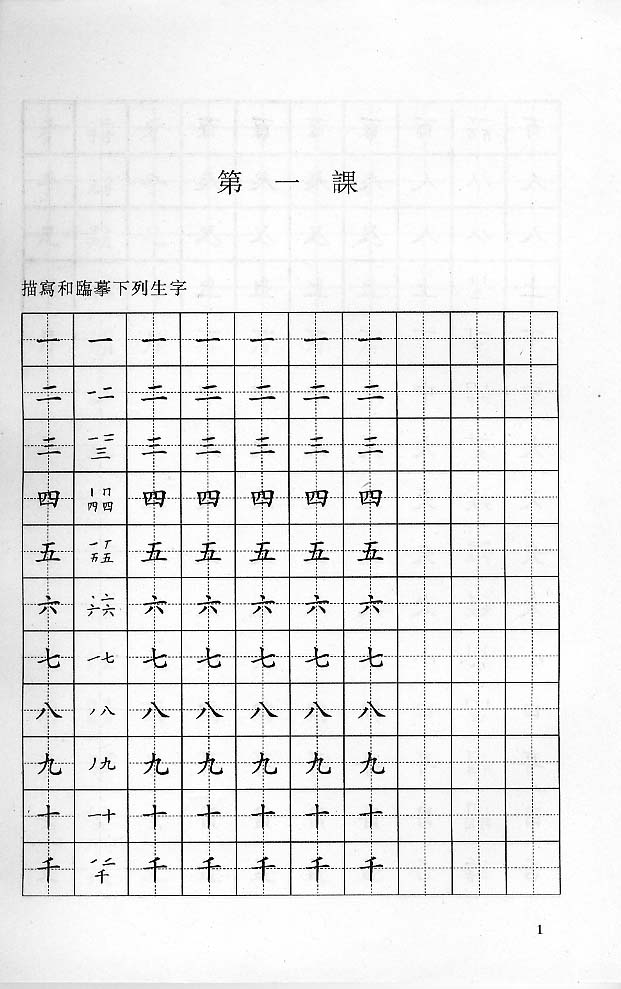 第一課
描寫和臨摹下列生字
一 一 一 一 一 一 一
二 一 二 二 二 二 二 二
三 一 二 三 三 三 三 三 三
四 丨 冂 四 四 四 四 四 四
五 一 丅 五 五 五 五 五 五
六 丶 亠 六 六 六 六 六 六 六
七 一 七 七 七 七 七 七
八 丿 八 八 八 八 八 八
九 丿 九 九 九 九 九 九
十 一 十 十 十 十 十 十
千 丿 二 千 千 千 千 千 千
1